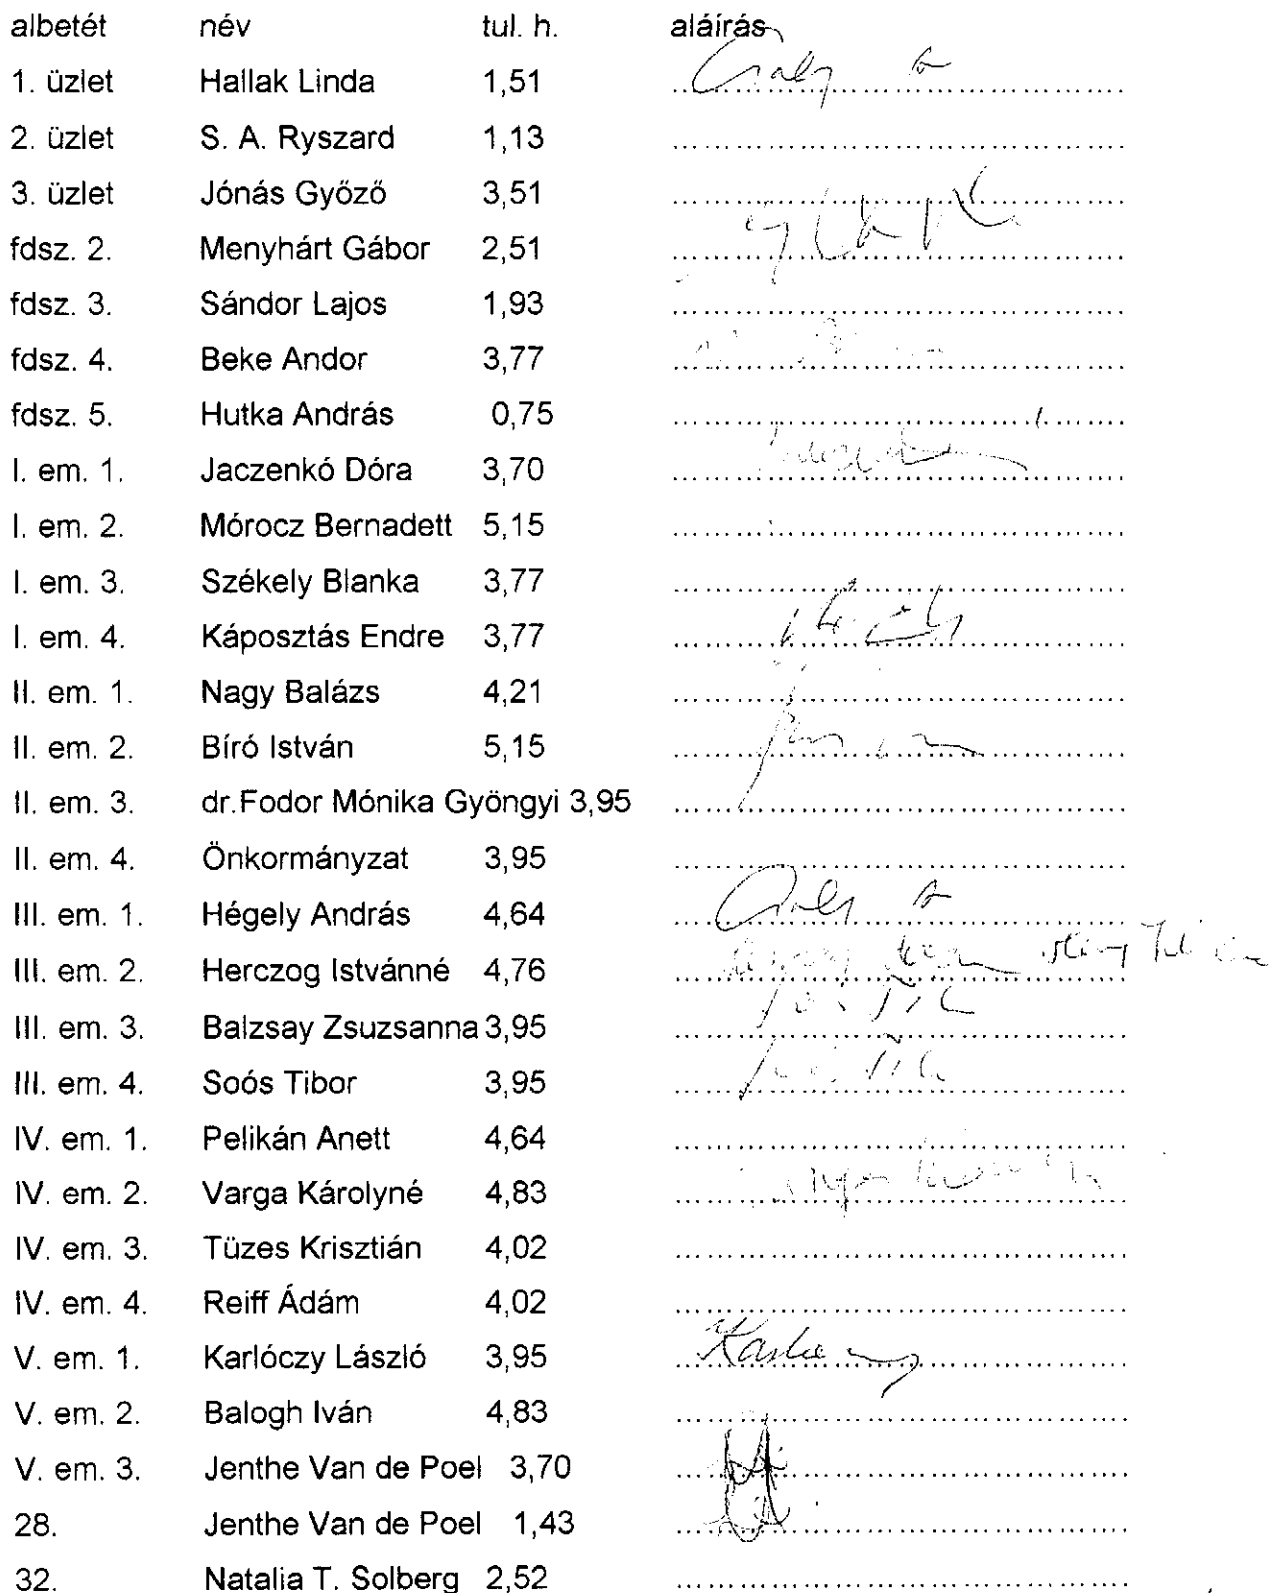 albetét név tul. h. aláírás
1. üzlet Hallak Linda 1,51
2. üzlet S. A. Ryszard 1,13
3. üzlet Jónás Győző 3,51
fdsz. 2. Menyhárt Gábor 2,51
fdsz. 3. Sándor Lajos 1,93
fdsz. 4. Beke Andor 3,77
fdsz. 5. Hutka András 0,75
I. em. 1. Jaczenkó Dóra 3,70
I. em. 2. Mórocz Bernadett 5,15
I. em. 3. Székely Blanka 3,77
I. em. 4. Káposztás Endre 3,77
II. em. 1. Nagy Balázs 4,21
II. em. 2. Bíró István 5,15
II. em. 3. dr.Fodor Mónika Gyöngyi 3,95
II. em. 4. Önkormányzat 3,95
III. em. 1. Hégely András 4,64
III. em. 2. Herczog Istvánné 4,76
III. em. 3. Balzsay Zsuzsanna 3,95
III. em. 4. Soós Tibor 3,95
IV. em. 1. Pelikán Anett 4,64
IV. em. 2. Varga Károlyné 4,83
IV. em. 3. Tüzes Krisztián 4,02
IV. em. 4. Reiff Ádám 4,02
V. em. 1. Karlóczy László 3,95
V. em. 2. Balogh Iván 4,83
V. em. 3. Jenthe Van de Poel 3,70
28. Jenthe Van de Poel 1,43
32. Natalia T. Solberg 2,52